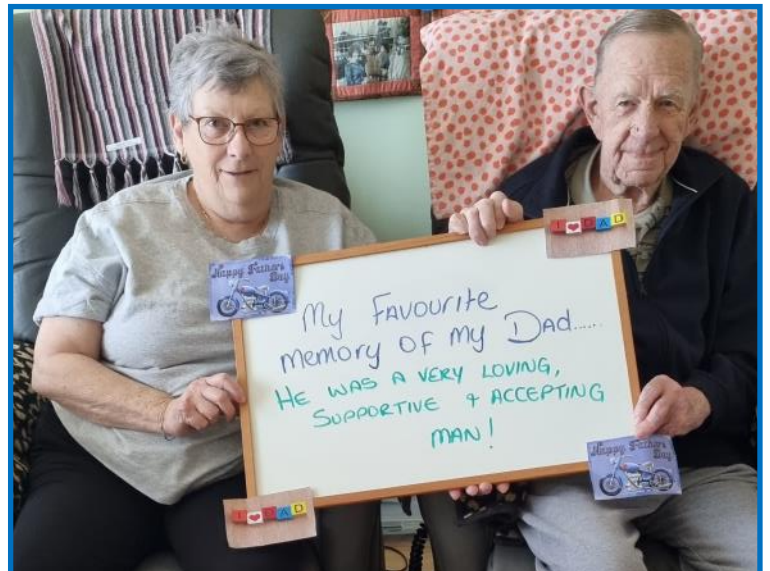 I ❤ DAD
Happy Father's
Day
My FAVOURITE
memory of my Dad.....
HE WAS A VERY LOVING,
SUPPORTIVE & ACCEPTING
MAN!
Happy Father's
Day
I ❤ DAD